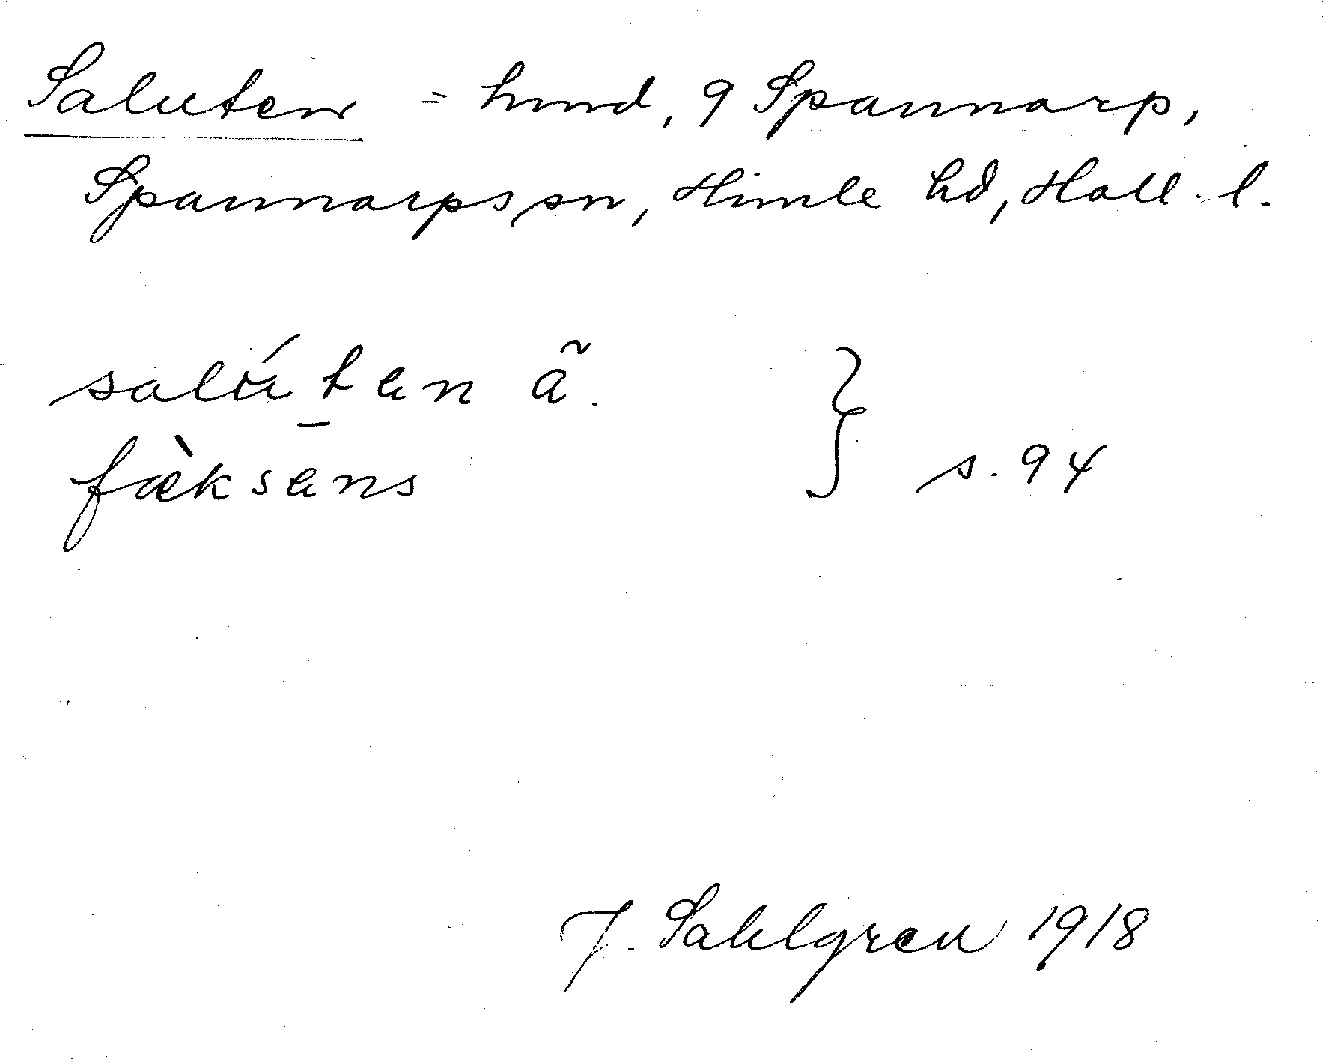 Saluten = hmd, 9 Spannarp,
Spannarps sn, Himle hd, Hall. l.
salú̱tan ã.
fæ̀ksans } s. 94
J. Sahlgren 1918